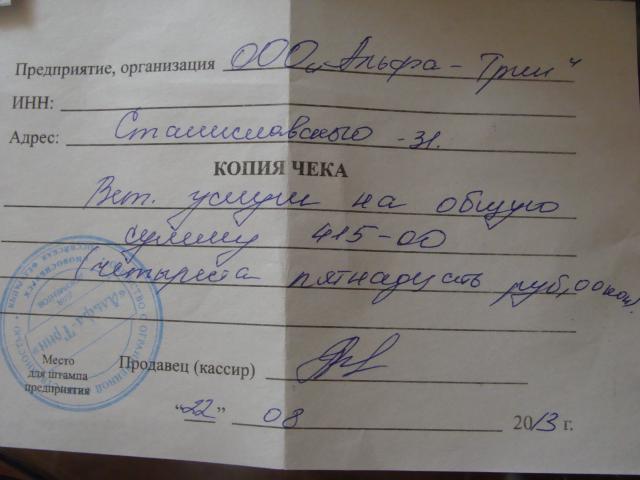 Предприятие, организация ООО „Альфа-Грин"
ИНН:
Адрес: Станиславского - 31.
КОПИЯ ЧЕКА
Вет. услуги на общую
сумму 415-00
(четыреста пятнадцать руб, 00 коп.
Продавец (кассир)
Место
для штампа
предприятия
"22" 08 2013 г.
«Альфа Грин»